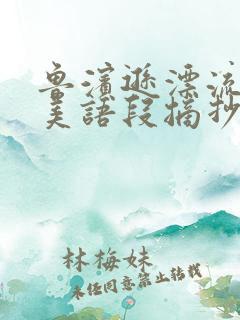 魯濱遜漂流
美語段摘抄
林梅妹
未经同意禁止转载